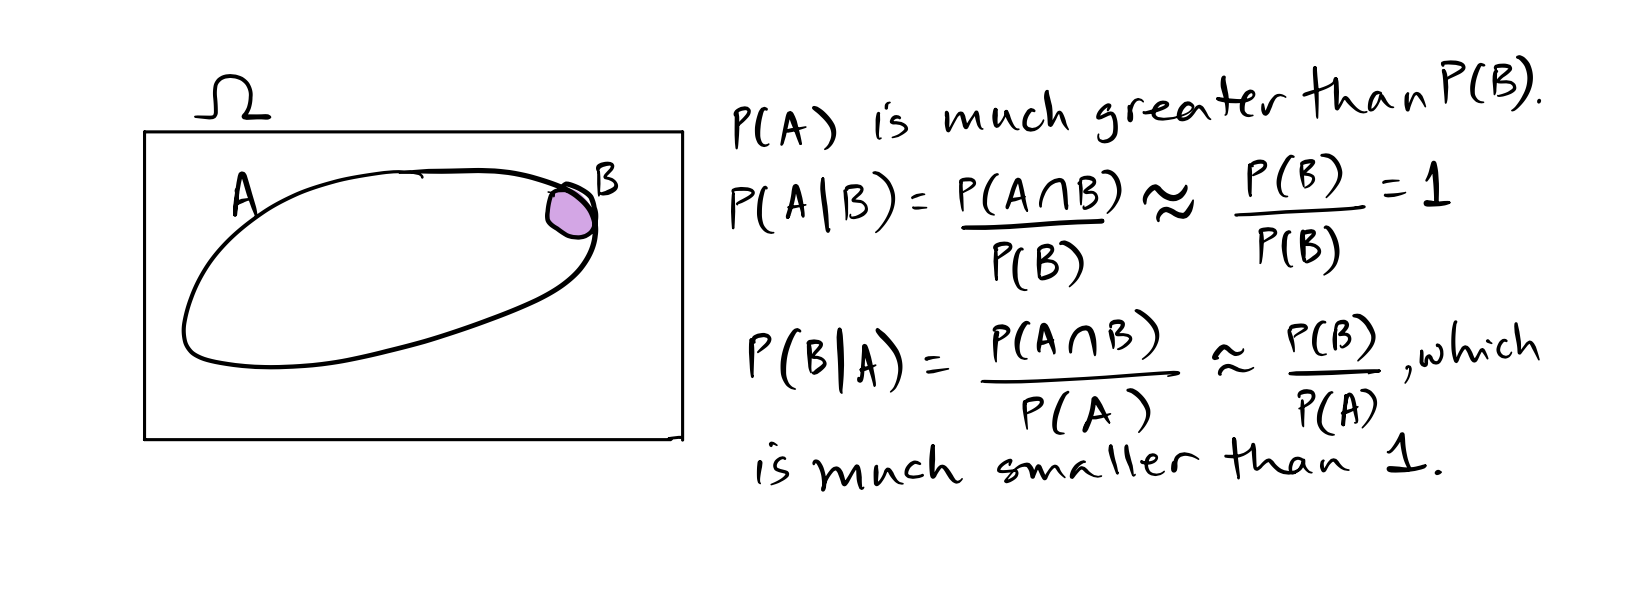 Ω
A
B
P(A) is much greater than P(B).
P(A|B) = P(A∩B)/P(B) ≈ P(B)/P(B) = 1
P(B|A) = P(A∩B)/P(A) ≈ P(B)/P(A), which
is much smaller than 1.